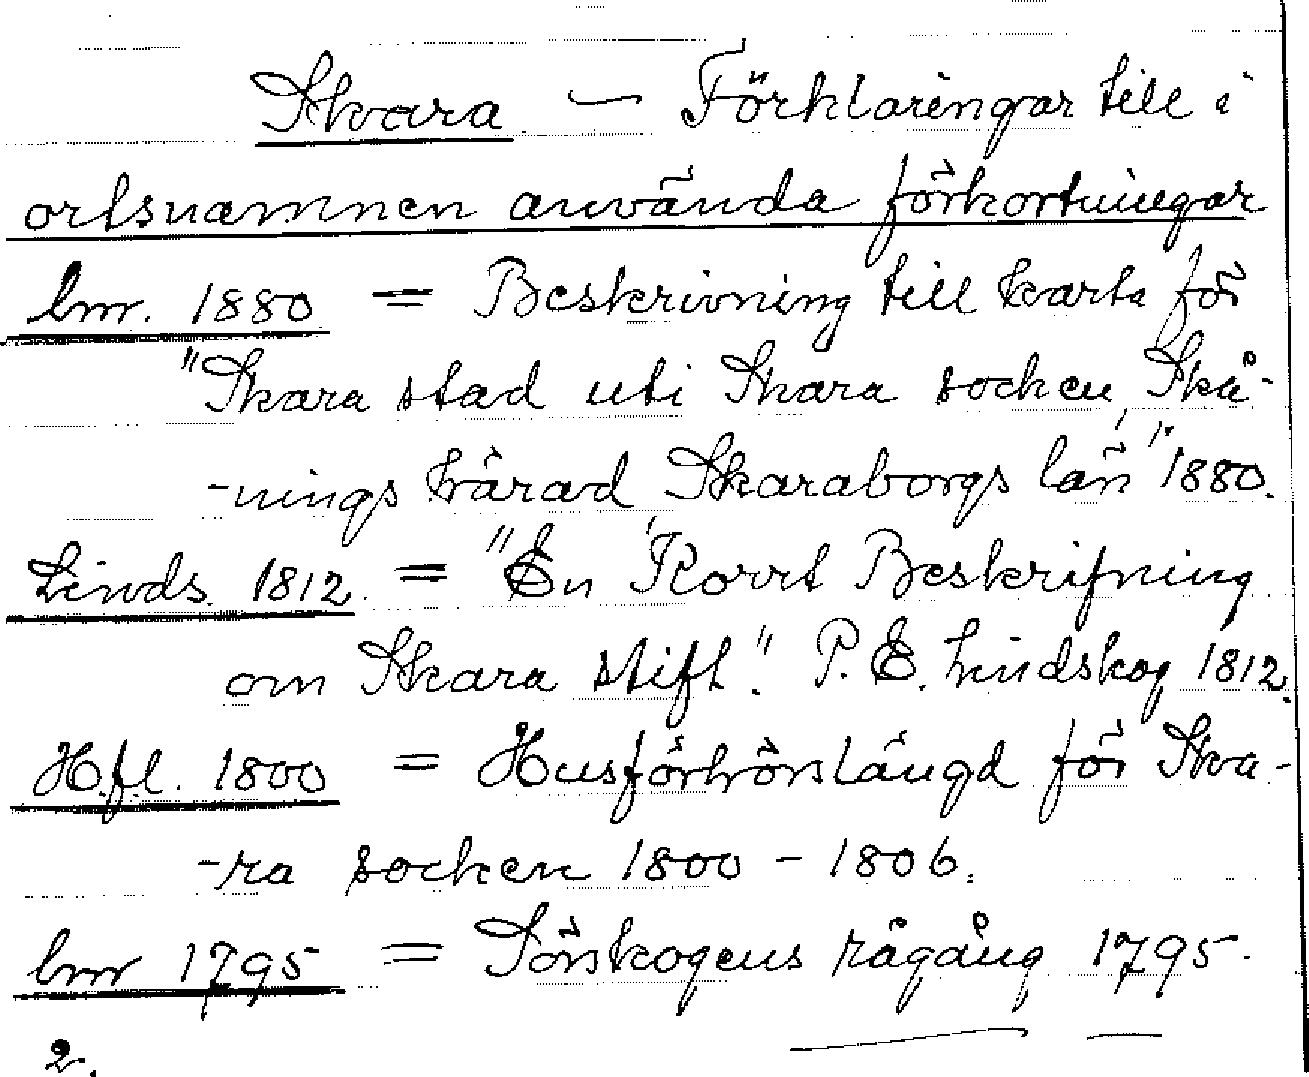 Skara – Förklaringar till i
ortsnamnen använda förkortningar
lmr. 1880 = Beskrivning till karta för
"Skara stad uti Skara socken, Skå-
-nings härad, Skaraborgs län", 1880.
Linds. 1812 = "En Korrt Beskrifning
om Skara stift". P. E. Lindskog 1812.
H.fl. 1800 = Husförhörslängd för Ska-
-ra socken 1800 – 1806.
lmr 1795 = Sörskogens rågång 1795.
2.